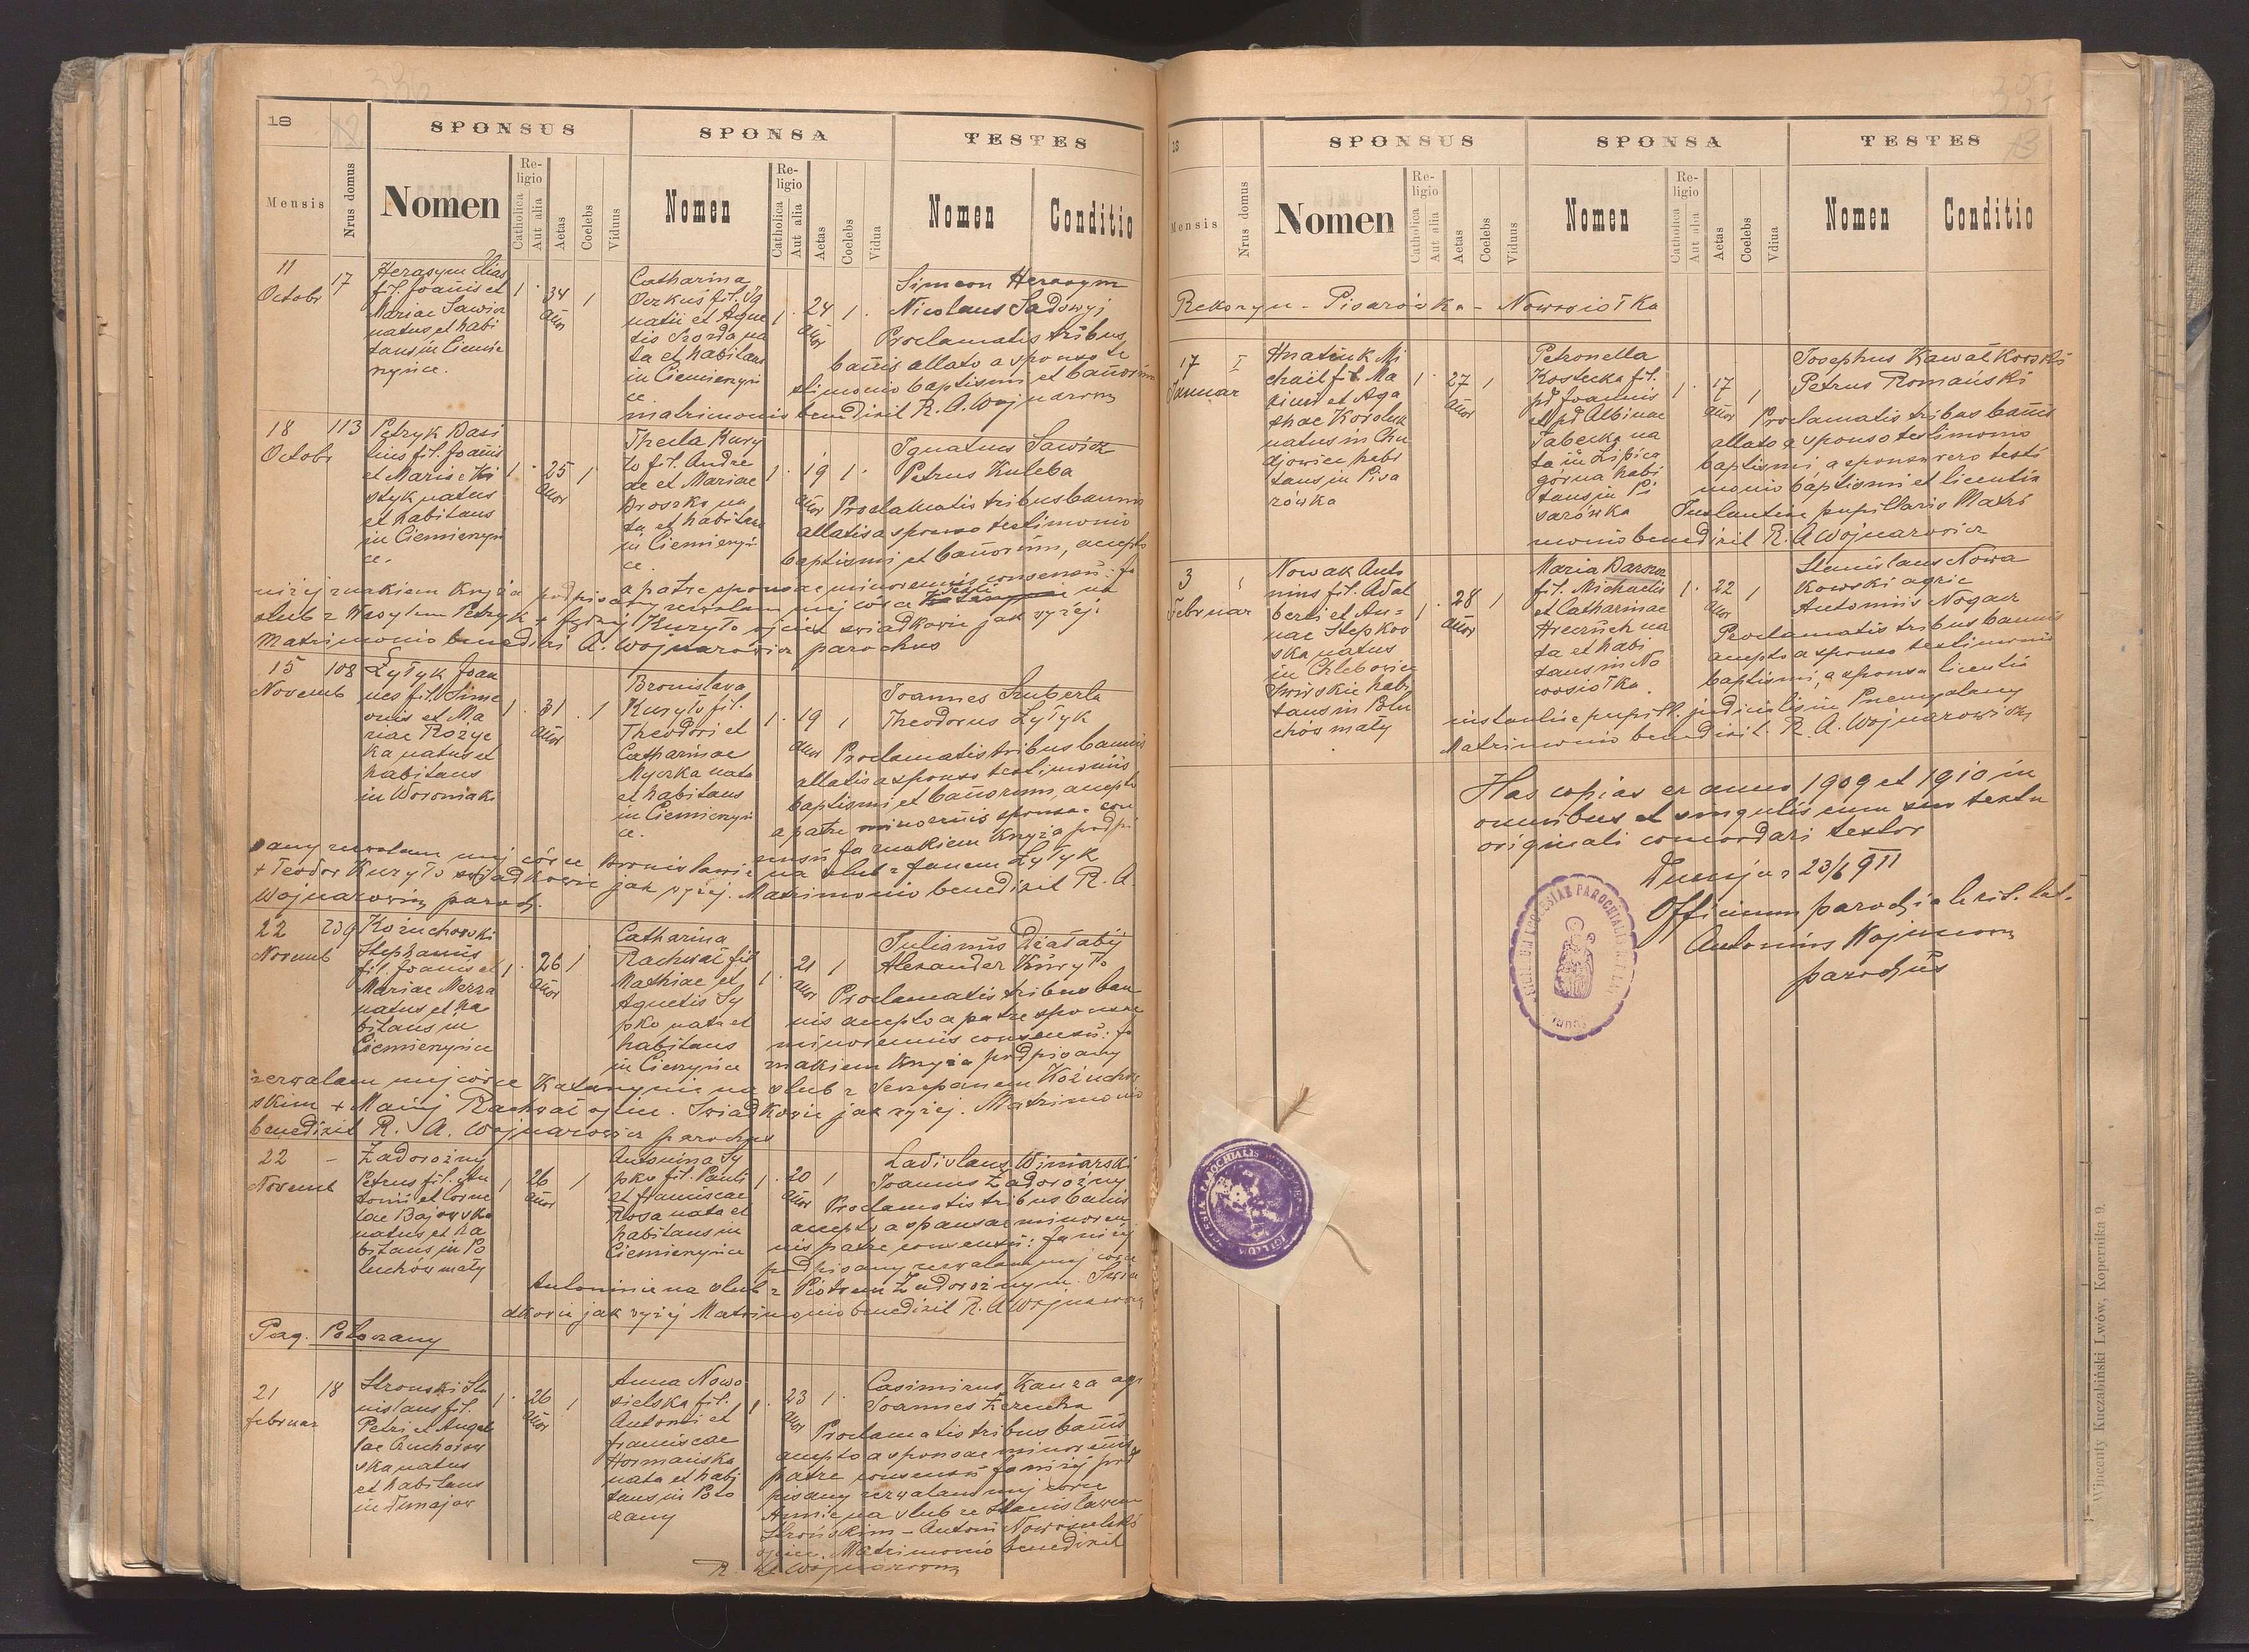 18
SPONSUS
SPONSA
TESTES
Mensis
Nrus domus
Nomen
Religio
Catholica
Aut alia
Aetas
Coelebs
Viduus
Nomen
Religio
Catholica
Aut alia
Aetas
Coelebs
Vidua
Nomen
Conditio
11
Octobr
17
Herasym Elias
fil. Joannis et
Mariae Sawicz
natus et habi
tans in Ciemie
rzyńce.
1
34
annor
1
Catharina
fil. Ig
natii et Agne
tis
ta et habitans
in Ciemierzyń
ce
1
24
annor
1
Simeon Herasym
Nicolaus Sadowyj
Proclamatis tribus
bannis allato a sponso te
stimonio baptismi et bannorum
matrimonio benedixit R. A. Wojnarowicz
18
Octobr
113
Petryk Basi
lius fil. Joannis
et Mariae Ki
styk natus
et habitans
in Ciemierzyń
ce.
1
25
annor
1
Thecla Kury
ło fil. Andre
ae et Mariae
Droszko na
ta et habitans
in Ciemierzyń
ce
1
19
annor
1
Ignatius Sawicz
Petrus Kuleba
Proclamatis tribus bannis
allatis a sponso testimonio
baptismi et bannorum, accepto
a patre sponsae minorennis consensu: Ja
niżej znakiem krzyża podpisany zezwalam mej córce na
ślub z Wasylem Petryk + Jędrzej Kuryło ojciec świadkowie jak wyżej.
Matrimonio benedixi A. Wojnarowicz parochus
15
Novemb
108
Łytyk Joan
nes fil. Sime
onis et Ma
riae Rożyc
ka natus et
habitans
in Woroniaki
1
31
annor
1
Bronislava
Kuryło fil.
Theodori et
Catharinae
Myczka nata
et habitans
in Ciemierzyń
ce.
1
19
annor
1
Joannes Szuberla
Theodorus Łytyk
Proclamatis tribus bannis
allatis a sponso testimoniis
baptismi et bannorum, accepto
a patre minorennis sponsae con
sensu Ja znakiem krzyża podpi
sany zezwalam mej córce Bronisławie na ślub z Janem Łytyk
+ Teodor Kuryło świadkowie jak wyżej. Matrimonio benedixit R. A.
Wojnarowicz paroch.
22
Novemb
239
Kożuchowski
Stephanus
fil. Joannis et
Mariae Merza
natus et ha
bitans in
Ciemierzyńce
1
26
annor
1
Catharina
Rachwał fil
Mathiae et
Agnetis Sy
pko nata et
habitans
in Cierzyńce
1
21
annor
1
Julianus Działabij
Alexander Kuryło
Proclamatis tribus ban
nis accepto a patre sponsae
minorennis consensu: Ja
znakiem krzyża podpisany
zezwalam mej córce Katarzynie na ślub z Szczepanem Kożuchow
skim + Maciej Rachwał ojciec. Świadkowie jak wyżej. Matrimonio
benedixit R. A. Wojnarowicz parochus
22
Novemb
–
Zadorożny
Petrus fil. An
tonii et Corne
lae Bajowska
natus et ha
bitans in Po
luchów mały
1
26
annor
1
Antonina Sy
pko fil. Pauli
et Franciscae
Rosa nata et
habitans in
Ciemierzyńce
1
20
annor
1
Ladislaus Winiarski
Joannes Zadorożny
Proclamatis tribus bannis
accepto a sponsae minoren
nis patre consensu: Ja niżej
podpisany zezwalam mej córce
Antoninie na ślub z Piotrem Zadorożnym. Świa
dkowie jak wyżej Matrimonio benedixit R. A Wojnarowicz
Pag. Potoczany
21
Februar
18
Stronski Sta
nislaus fil.
Petri et Ange
lae
ska natus
et habitans
in Dunajow
1
26
annor
1
Anna Nowo
sielska fil.
Antonii et
Franciscae
Hormańska
nata et habi
tans in Poto
czany
1
23
annor
1
Casimirus Kauza agr
Joannes Żerenka
Proclamatis tribus bannis
accepto a sponsae minorennis
patre consensu Ja niżej pod
pisany zezwalam mej córce
Annie na ślub ze Stanisławem
Strońskim – Antoni Nowosielski
ojciec. Matrimonio benedixit
R. A Wojnarowicz
18
13
SPONSUS
SPONSA
TESTES
Mensis
Nrus domus
Nomen
Religio
Catholica
Aut alia
Aetas
Coelebs
Viduus
Nomen
Religio
Catholica
Aut alia
Aetas
Coelebs
Vidua
Nomen
Conditio
Rekszyn – Pisarówka – Nowosiołka
17
Januar
I
Hnatiuk Mi
chael fil. Ma
ximi et Aga
thae Koroluk
natus in Chu
djowice habi
tans in Pisa
rówka
1
27
annor
1
Petronella
Kostecka fil.
pd Joannis
et pd Albinae
Taberka na
ta in Lipica
górna habi
tans in Pi
sarówka
1
17
annor
1
Josephus Kawałkowski
Petrus Romański
Proclamatis tribus bannis
allato a sponso testimonio
baptismi, a sponsa vero testi
monio baptismi et licentia
Instantiae pupillaris Matri
monio benedixit R. A Wojnarowicz
3
Februar
Nowak Anto
nius fil. Adal
berti et An=
nae Stepkow
ska natus
in Chlebowice
Świrskie habi
tans in Polu
chów mały
1
28
annor
1
Maria
fil. Michaelis
et Catharinae
Hreczuch na
ta et habi
tans in No
wosiołka
1
22
annor
1
Stanislaus Nowa
kowski agric
Antonius Nogacz
Proclamatis tribus bannis
accepto a sponso testimonio
baptismi, a sponsa licentia
instantiae pupill. judicialis in Przemyślany
Matrimonio benedixit R. A. Wojnarowicz
Has copias ex anno 1909 et 1910 in
omnibus et singulis cum suo textu
originali concordari testor
Dunajów 23/6 911
Officium parochiale rit. lat.
Antonius Wojnarowicz
parochus
Wincenty Kuczabiński Lwów, Kopernika 9.